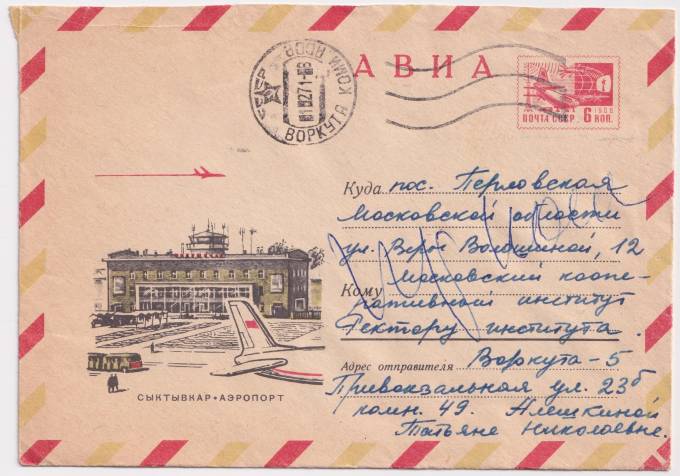 АВИА
СССР
ВОРКУТА КОМИ АССР
ПОЧТА СССР 6 КОП.
1966
Куда пос. Перловская
Московской области
ул. Веры Волошиной, 12
Московский коопе-
Кому
ративный институт
Ректору института.
Адрес отправителя Воркута-5
Привокзальная ул. 23б
комн. 49. Алешкиной
Татьяне Николаевне.
СЫКТЫВКАР • АЭРОПОРТ